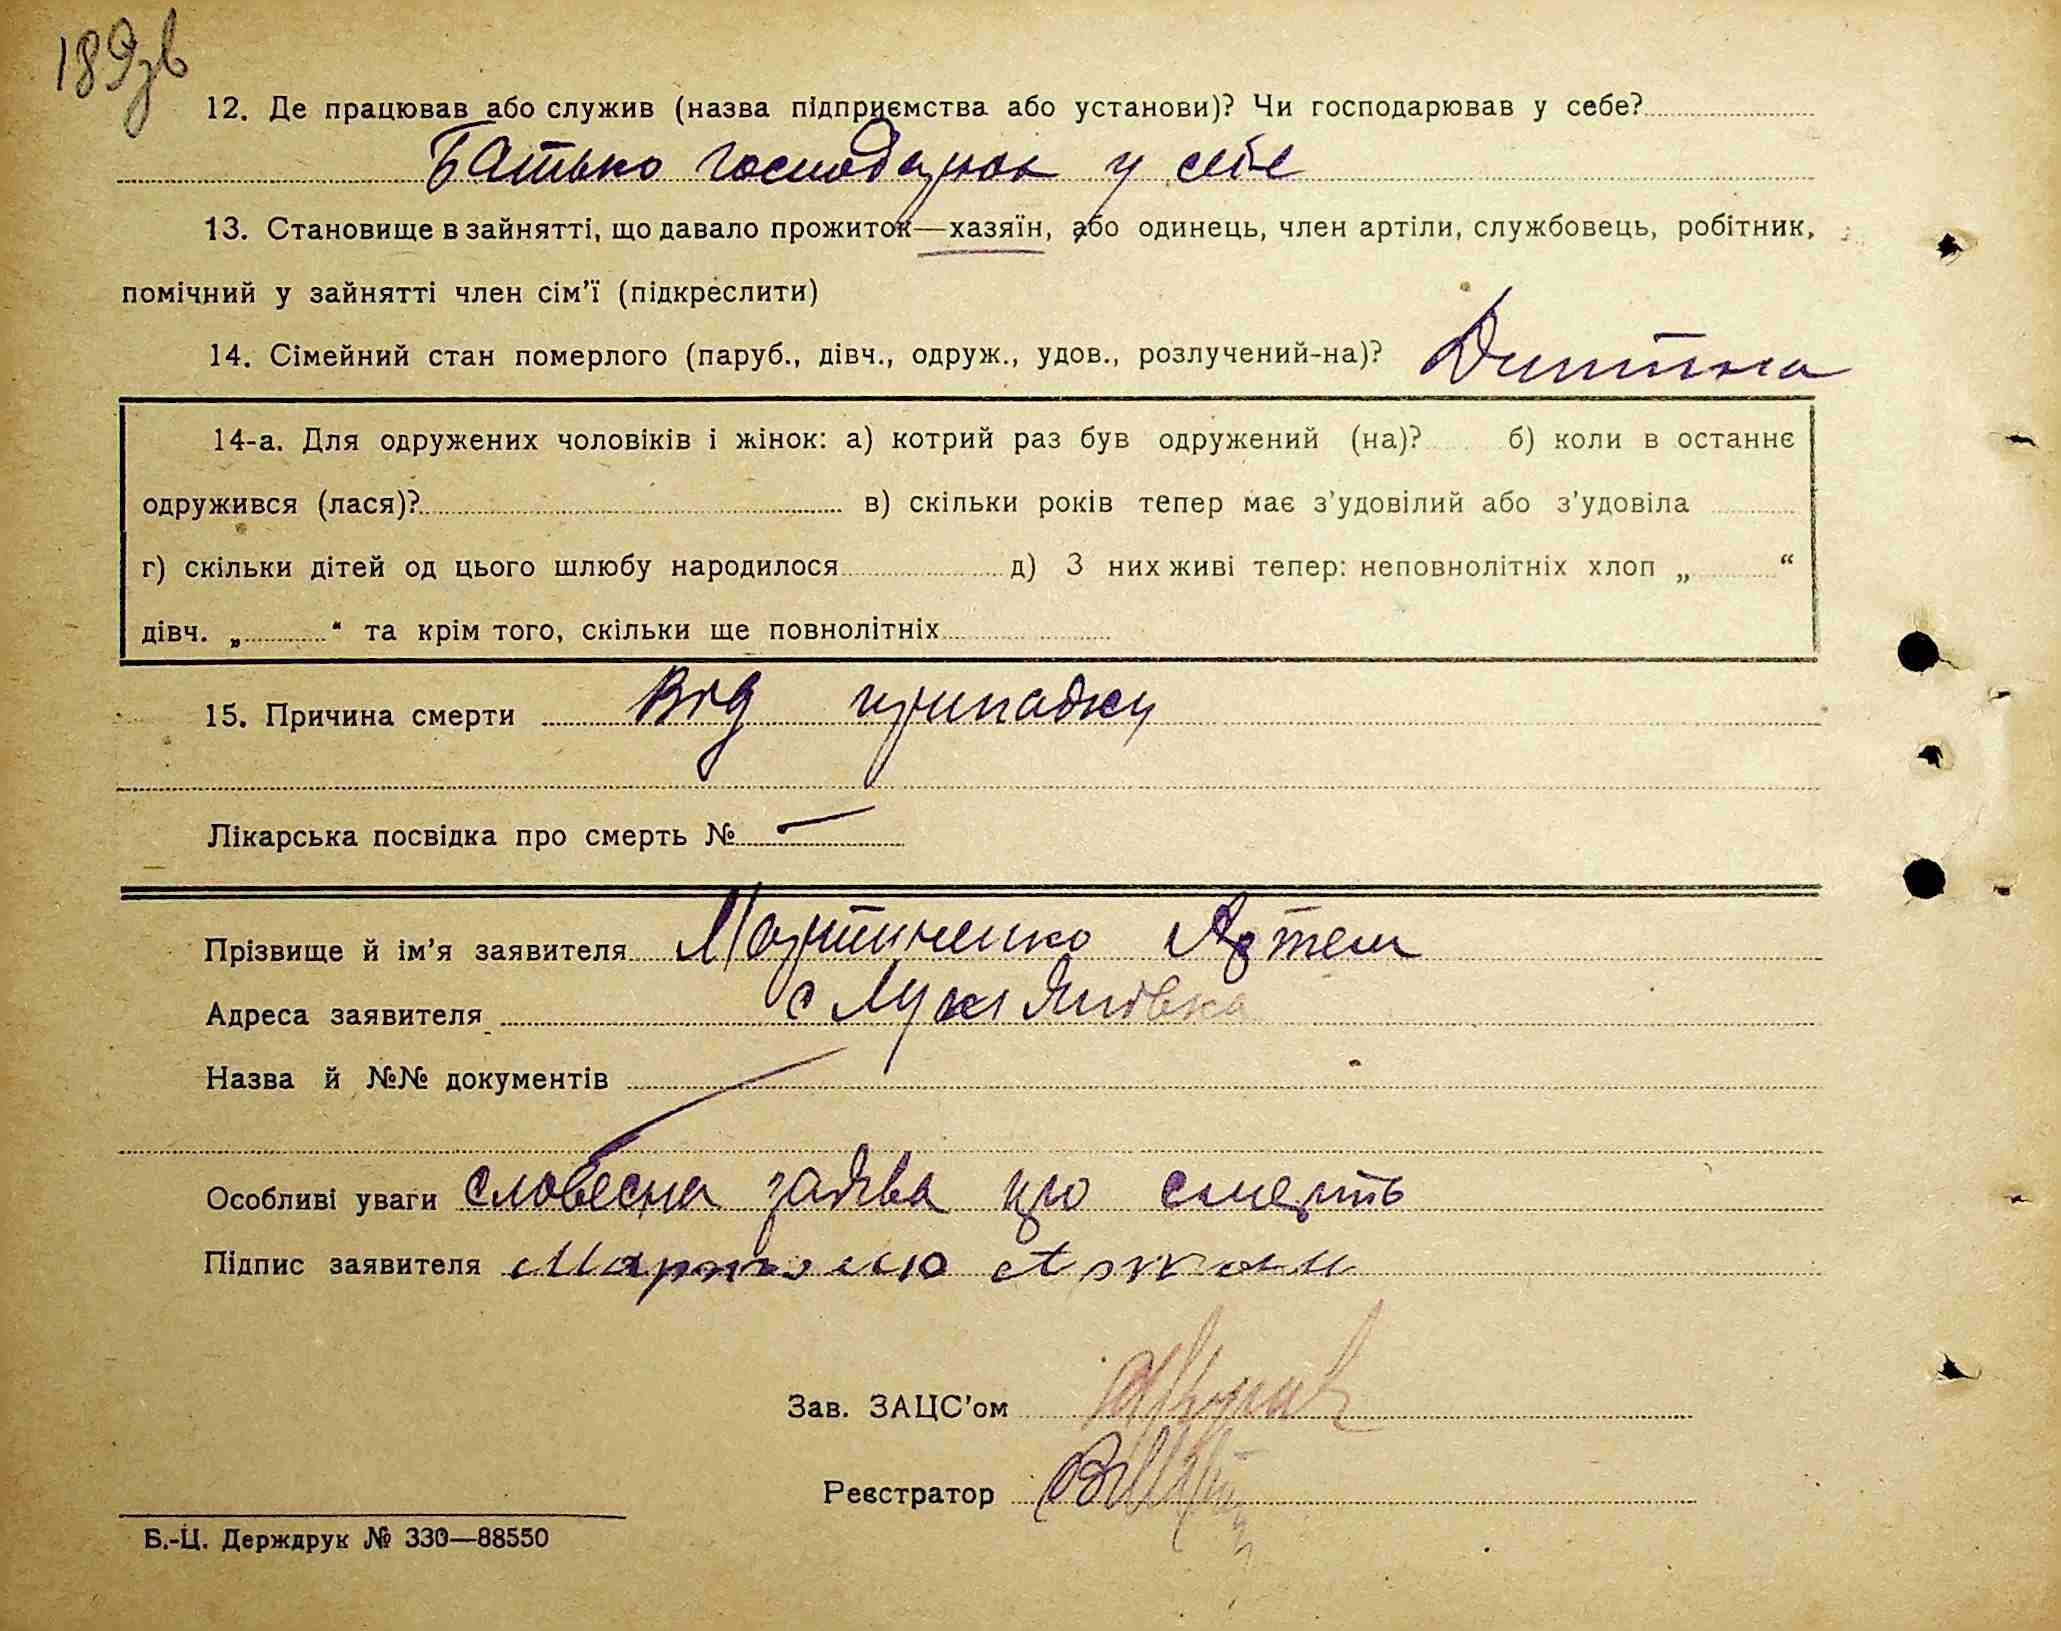 189зв
12. Де працював або служив (назва підприємства або установи)? Чи господарював у себе?
Батько господарює у себе
13. Становище в зайнятті, що давало прожиток—хазяїн, або одинець, член артіли, службовець, робітник,
помічний у зайнятті член сім'ї (підкреслити)
14. Сімейний стан померлого (паруб., дівч., одруж., удов., розлучений-на)? Дитина
14-а. Для одружених чоловіків і жінок: а) котрий раз був одружений (на)? б) коли в останнє
одружився (лася)? в) скільки років тепер має з'удовілий або з'удовіла
г) скільки дітей од цього шлюбу народилося д) З них живі тепер: неповнолітніх хлоп „ “
дівч. „ “ та крім того, скільки ще повнолітніх
15. Причина смерти Від припадку
Лікарська посвідка про смерть № —
Прізвище й ім'я заявителя Мартиненко Артем
Адреса заявителя с Лук'янівка
Назва й №№ документів
Особливі уваги Словесна заява про смерть
Підпис заявителя
Зав. ЗАЦС'ом
Реєстратор
Б.-Ц. Держдрук № 330—88550